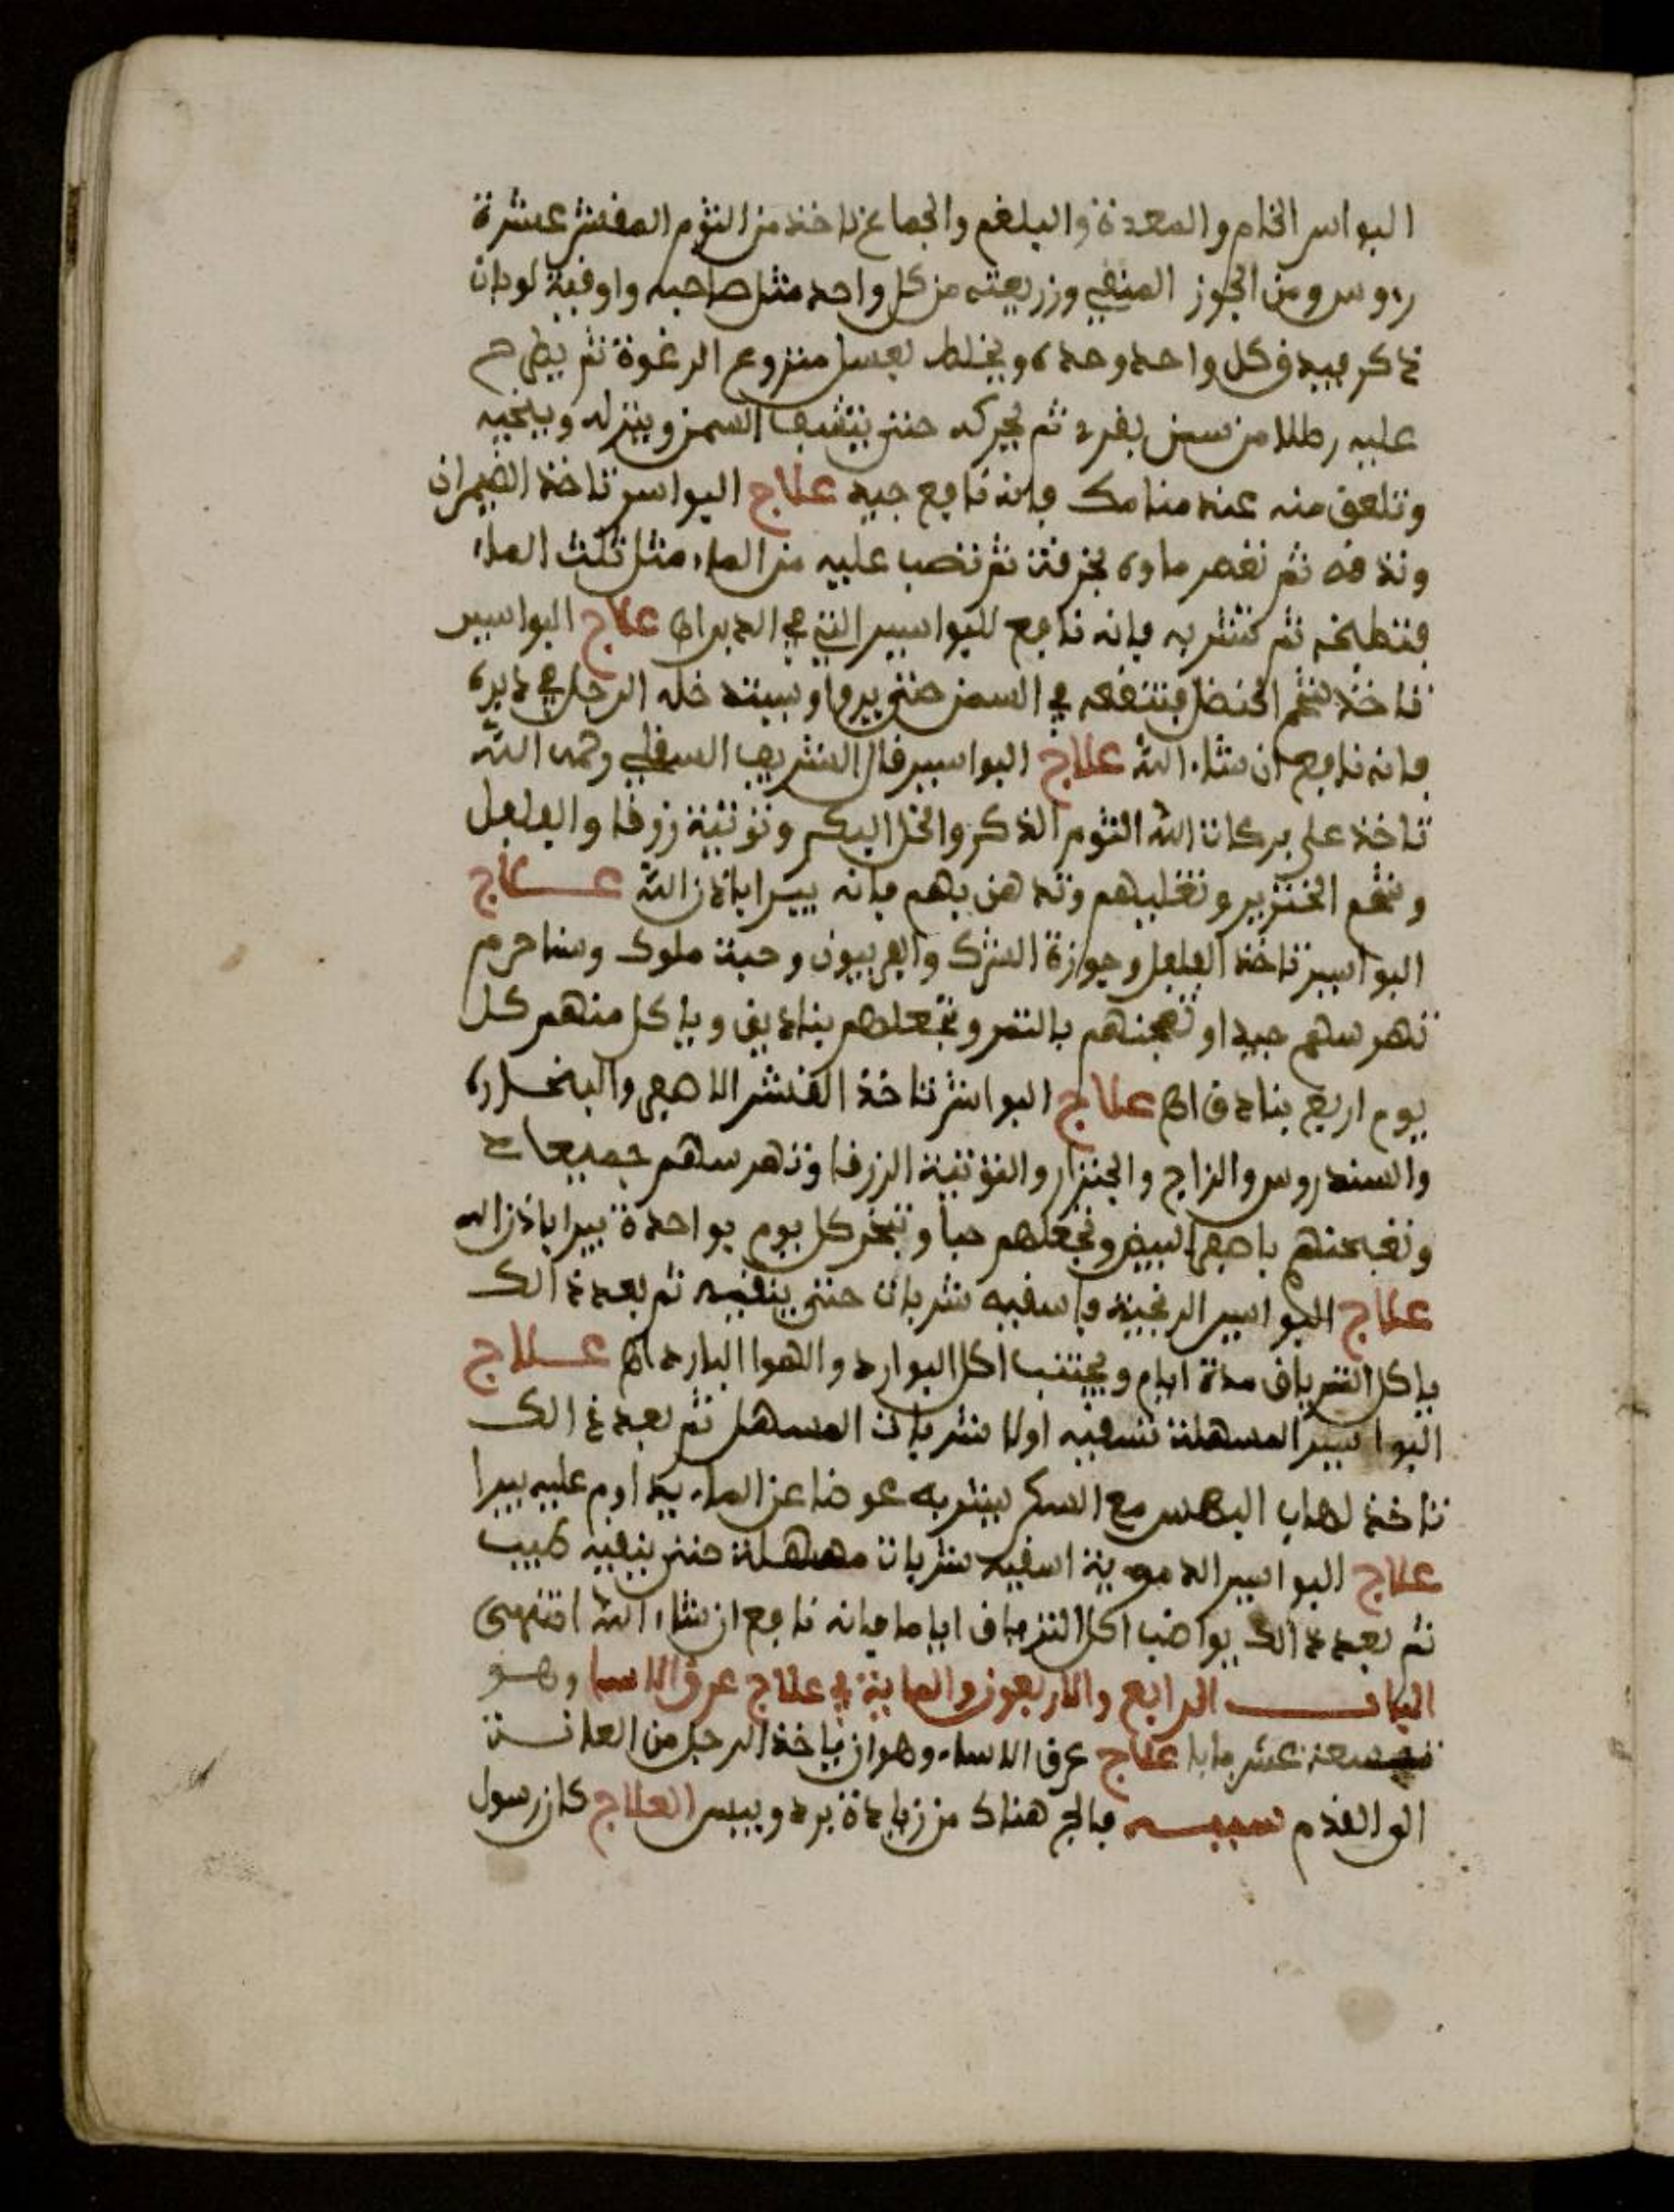 البواسر الخام والمعدة والبلغم والجماع تاخذ من الثوم المقشر عشرة
رءوس ومن الجوز المنقي وزريعته من كل واحد مثل صاحبه واوقية لوبان
ذكر فيدق كل واحد وحده ويخلط بعسل منزوع الرغوة ثم يطرح
عليه رطلا من سمن بقري ثم يحركه حتى ينشف السمن وينزله
وتلعق منه عند منامك فانه نافع جيد علاج البواسر تاخذ الضيمران
وتدقه ثم تعصر ماءه بخرقة ثم تصب عليه من الماء مثل ثلث الماء
فتطبخه ثم تشربه فانه نافع للبواسير التي في الدبر اه علاج البواسير
تاخذ شحم الحنضل فتنقعه في السمن حتى يروا وسيتدخله الرجل في دبره
فانه نافع ان شاء الله علاج البواسير قال الشريف السفلي رحمه الله
تاخذ على بركات الله الثوم الذكر والخل البكر وتوتية زرقا والفلفل
وشحم الخنزير وتغليهم وتدهن بهم فانه يبرا باذن الله علاج
البواسير تاخذ الفلفل وجوزة الشرك والفربيون وحبة ملوك وسناحرم
تهرسهم جيدا وتعجنهم بالتمر وتجعلهم بنادق وياكل منهم كل
يوم اربع بنادق اه علاج البواسر تاخذ القشر الاصفر والبخاره
والسندروس والزاج والجنزار والتوتية الزرقا وتهرسهم جميعا
وتعجنهم باصفر البيض وتجعلهم حبا وتبخر كل يوم بواحدة يبرا باذن الله
علاج البواسير الريحية فاسقيه شربات حتى ينقيه ثم بعد ذالك
ياكل الترياق مدة ايام ويجتنب اكل البوارد والهوا البارد اه علاج
البواسير المسهلة تسقيه اولا شربات المسهل ثم بعد ذالك
تاخذ لعاب مع السكر يشربه عوضا عن الماء يداوم عليه يبرا
علاج البواسير الدموية اسقيه شربات مسهلة حتى ينقيه طيب
ثم بعد ذالك يواضب اكل الترياق اياما فانه نافع ان شاء الله انتهى
الباب الرابع والاربعون والماية في علاج عرق الاسا وهو
تسعة عشر بابا علاج عرق الاساء وهو ان ياخذ الرجل من العانة
الى القدم سببه فالج هناك من زيادة برد ويبس العلاج كان رسول